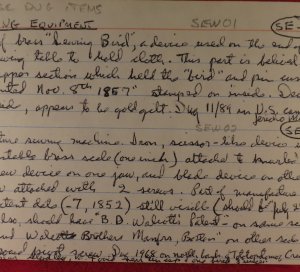 DUG ITEMS
NG EQUIPMENT SEW01 (SE-
of brass "Sewing Bird", a device used on the end of
sewing table to hold cloth. This part is believed
upper section which held the "bird" and pin cus
nted Nov. 8th 1857" stamped on inside. Dec
, appears to be gold gilt. Dug 11/89 in U.S. cam
SEW02 (SE-
sewing machine. Iron, scissor-like device
table brass scale (one inch) attached to
device on one jaw, and blade device on oth
attached with 2 screws. Part of manufactur
patent date (-7, 1852) still visible (should be "July 2
also, should have "B.D. Patent" on same s
and Brother Manfrs, Boston" on other sid
Dug 1968 on north bank of